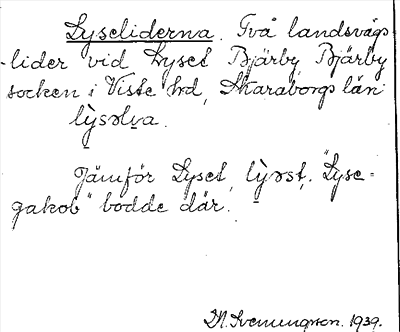 Lyseliderna. Två landsvägs
-lider vid Lyset Bjärby Bjärby
socken i Viste hd, Skaraborgs län
lỳsəlıɐa.
Jämför Lyset, lỳsət. "Lyse-
gakob" bodde där.
1939.